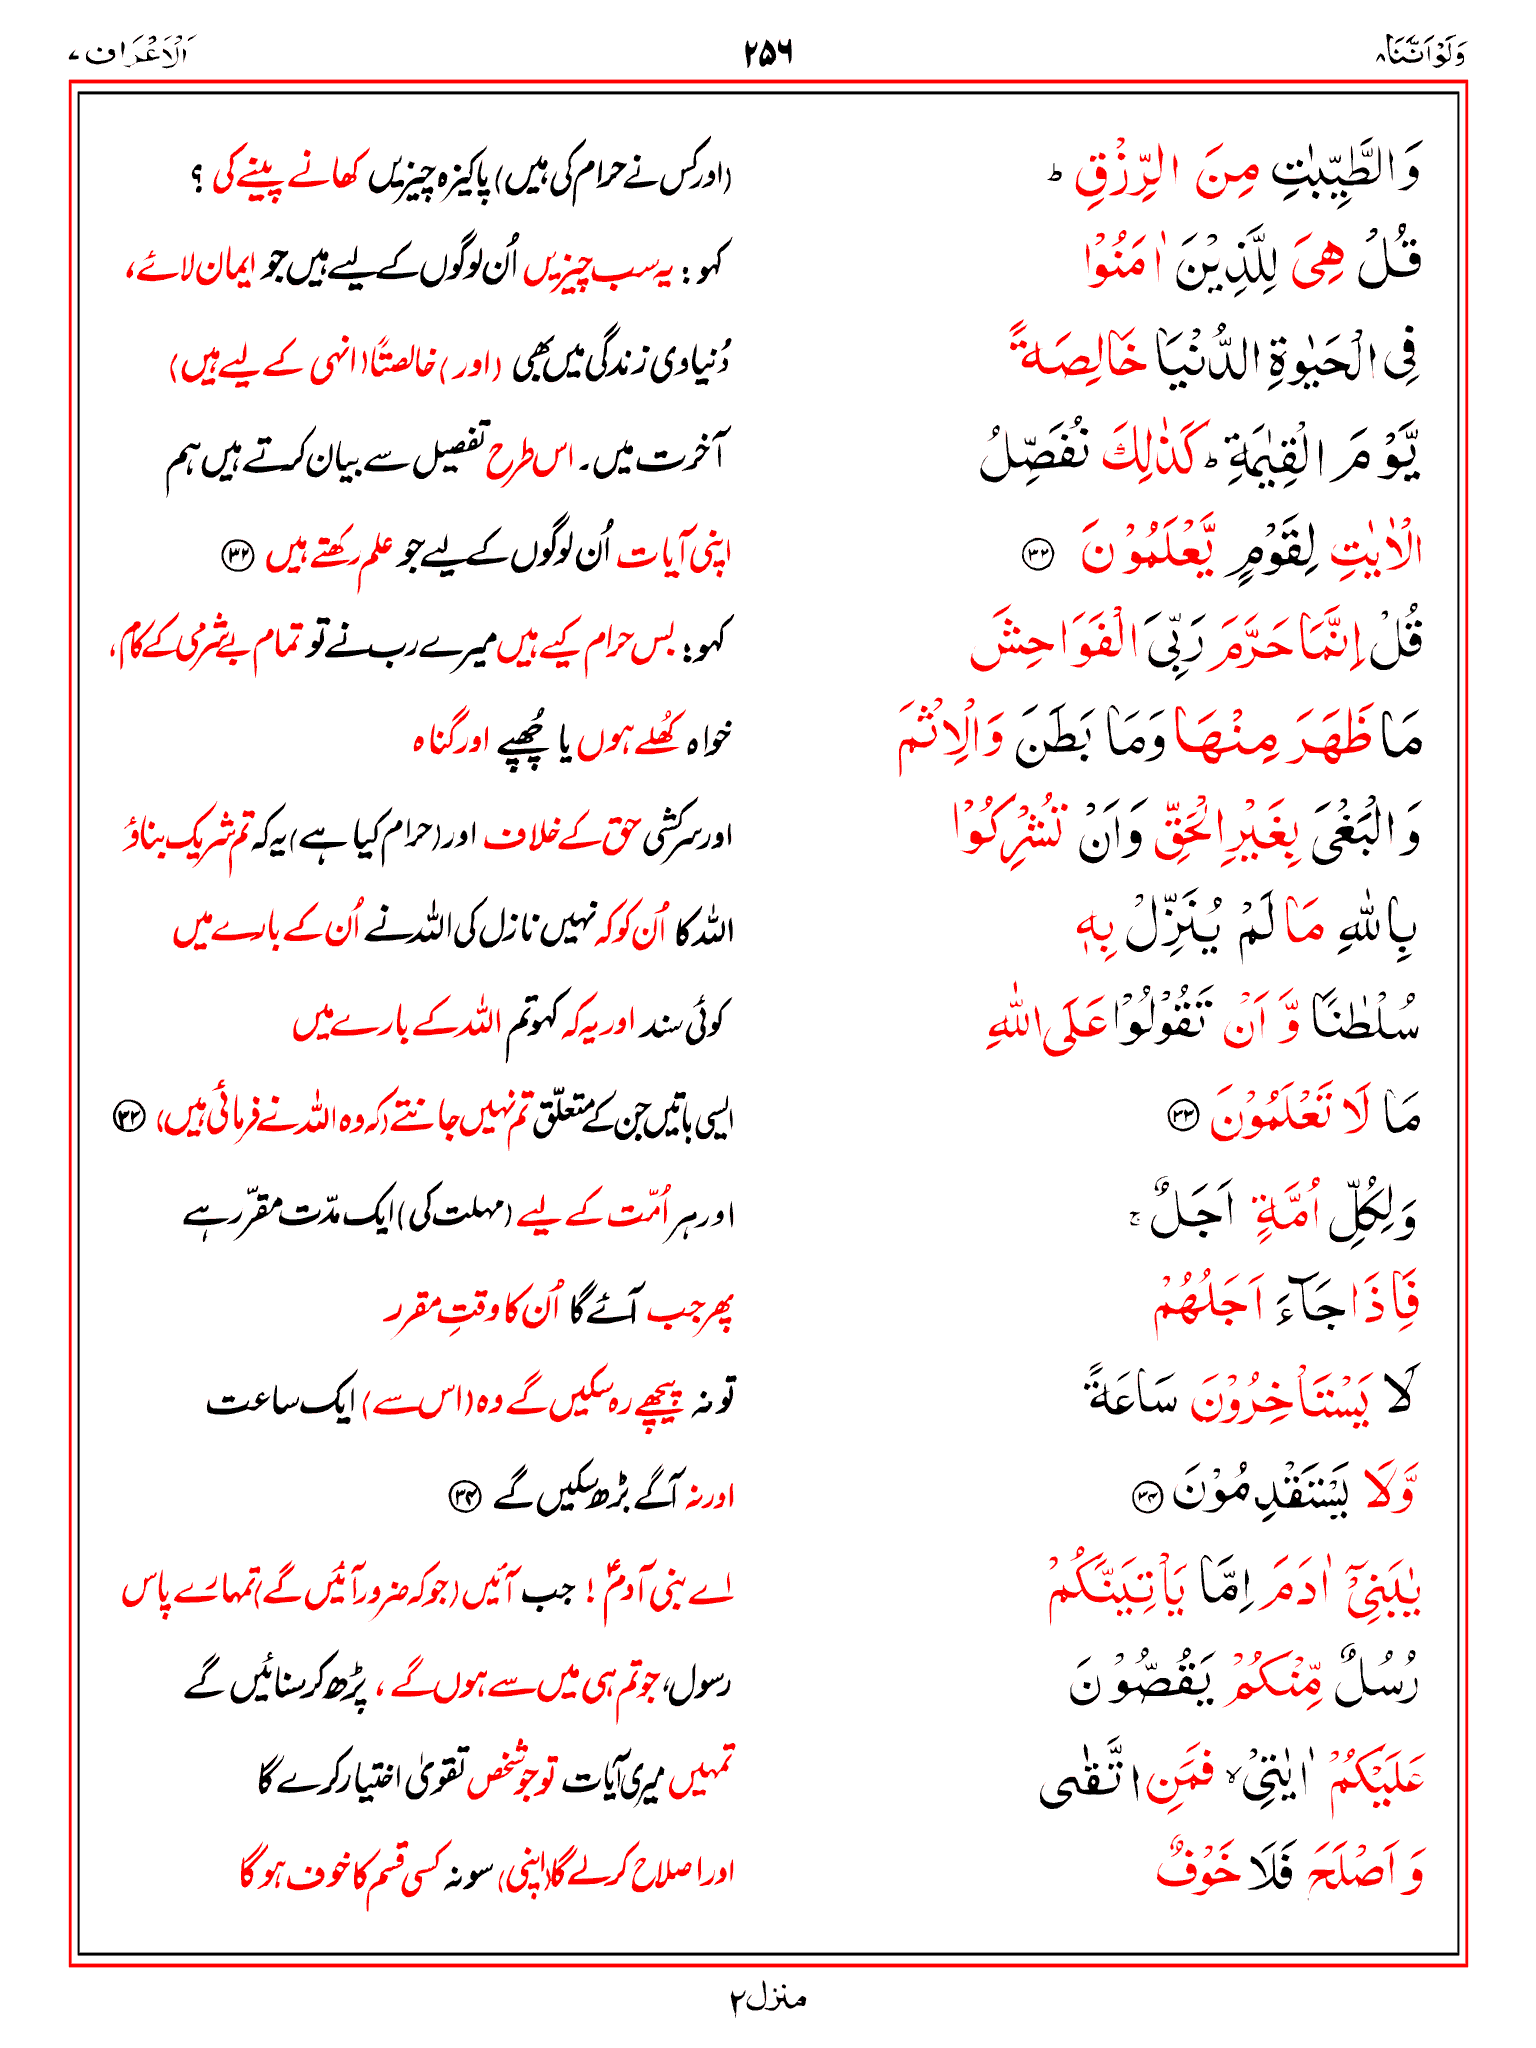 وَلَوْ اَنَّنَا ۸ ۲۵۶ اَلْاَعْرَاف ۷
وَالطَّيِّبٰتِ مِنَ الرِّزْقِ ؕ (اور کس نے حرام کی ہیں) پاکیزہ چیزیں کھانے پینے کی ؟
قُلْ هِیَ لِلَّذِيْنَ اٰمَنُوْا کہو: یہ سب چیزیں اُن لوگوں کے لیے ہیں جو ایمان لائے،
فِی الْحَيٰوةِ الدُّنْيَا خَالِصَةً دُنیاوی زندگی میں بھی (اور) خالصتًا (انہی کے لیے ہیں)
يَّوْمَ الْقِيٰمَةِ ؕ كَذٰلِكَ نُفَصِّلُ آخرت میں۔ اس طرح تفصیل سے بیان کرتے ہیں ہم
الْاٰيٰتِ لِقَوْمٍ يَّعْلَمُوْنَ ۳۲ اپنی آیات اُن لوگوں کے لیے جو علم رکھتے ہیں ۳۲
قُلْ اِنَّمَا حَرَّمَ رَبِّیَ الْفَوَاحِشَ کہو: بس حرام کیے ہیں میرے رب نے تو تمام بے شرمی کے کام،
مَا ظَهَرَ مِنْهَا وَمَا بَطَنَ وَالْاِثْمَ خواہ کُھلے ہوں یا چُھپے اور گناہ
وَالْبَغْیَ بِغَيْرِ الْحَقِّ وَاَنْ تُشْرِكُوْا اور سرکشی حق کے خلاف اور (حرام کیا ہے) یہ کہ تم شریک بناؤ
بِاللّٰهِ مَا لَمْ يُنَزِّلْ بِهٖ اللہ کا اُن کو کہ نہیں نازل کی اللہ نے اُن کے بارے میں
سُلْطٰنًا وَّ اَنْ تَقُوْلُوْا عَلَی اللّٰهِ کوئی سند اور یہ کہ کہو تم اللہ کے بارے میں
مَا لَا تَعْلَمُوْنَ ۳۳ ایسی باتیں جن کے متعلّق تم نہیں جانتے (کہ وہ اللہ نے فرمائی ہیں) ۳۳
وَلِكُلِّ اُمَّةٍ اَجَلٌ ۚ اور ہر اُمّت کے لیے (مہلت کی) ایک مدّت مقرّر ہے
فَاِذَا جَآءَ اَجَلُهُمْ پھر جب آئے گا اُن کا وقتِ مقرر
لَا يَسْتَاْخِرُوْنَ سَاعَةً تو نہ پیچھے رہ سکیں گے وہ (اس سے) ایک ساعت
وَّلَا يَسْتَقْدِمُوْنَ ۳۴ اور نہ آگے بڑھ سکیں گے ۳۴
يٰبَنِیْۤ اٰدَمَ اِمَّا يَاْتِيَنَّكُمْ اے بنی آدمؑ ! جب آئیں (جو کہ ضرور آئیں گے) تمہارے پاس
رُسُلٌ مِّنْكُمْ يَقُصُّوْنَ رسول، جو تم ہی میں سے ہوں گے ، پڑھ کر سنائیں گے
عَلَيْكُمْ اٰيٰتِیْ ۙ فَمَنِ اتَّقٰی تمہیں میری آیات تو جو شخص تقویٰ اختیار کرے گا
وَ اَصْلَحَ فَلَا خَوْفٌ اور اصلاح کرلے گا (اپنی) سو نہ کسی قسم کا خوف ہوگا
منزل ۲